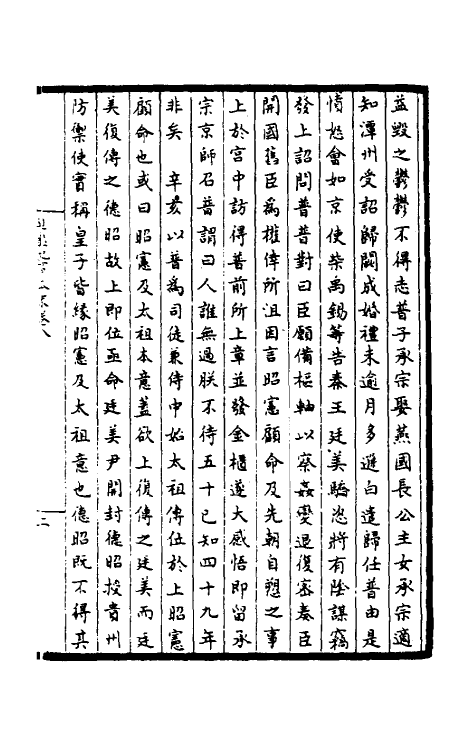 益毀之鬱鬱不得志普子承宗娶燕國長公主女承宗適
知潭州受詔歸闕成婚禮未逾月多遜白遣歸任普由是
憤怒會如京使柴禹錫等告秦王廷美驕恣將有陰謀竊
發上詔問普普對曰臣願備樞軸以察姦變退復密奏臣
開國舊臣為權倖所沮因言昭憲顧命及先朝自愬之事
上於宮中訪得普前所上章並發金櫃遂大感悟即留承
宗京師召普謂曰人誰無過朕不待五十已知四十九年
非矣　辛亥以普為司徒兼侍中始太祖傳位於上昭憲
顧命也或曰昭憲及太祖本意蓋欲上復傳之廷美而廷
美復傳之德昭故上即位亟命廷美尹開封德昭授貴州
防禦使實稱皇子皆緣昭憲及太祖意也德昭既不得其